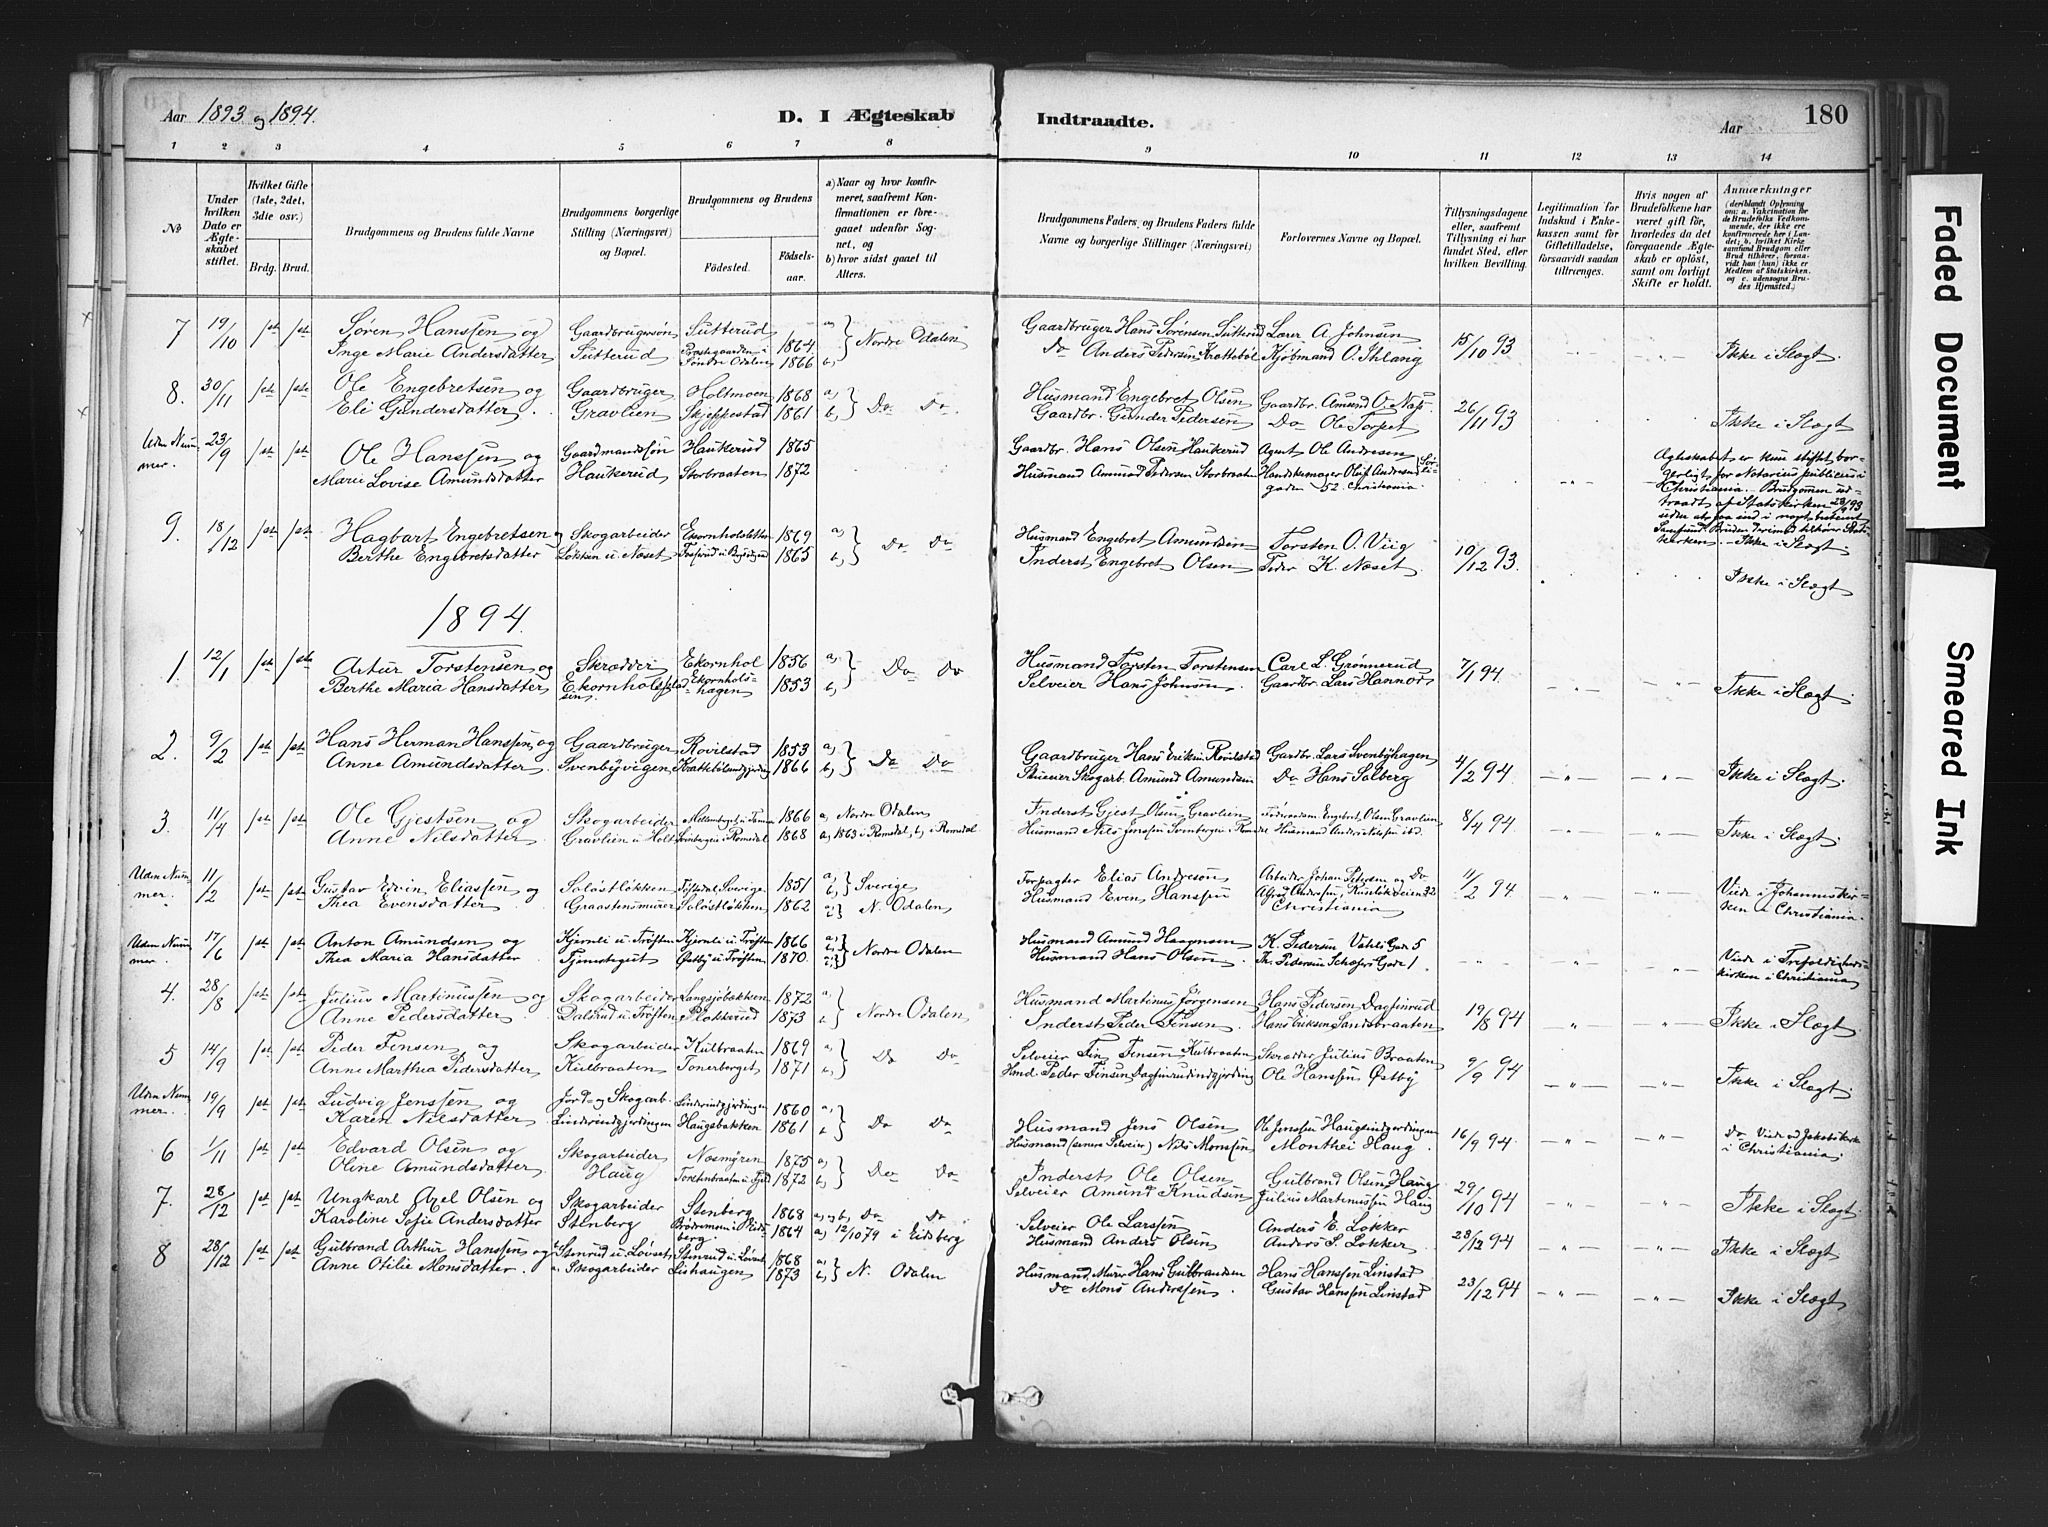 Aar 1893 og 1894.
D. I Ægteskab Indtraadte.
Aar
180
1 2 3 4 5 6 7 8 9 10 11 12 13 14
No
Under hvilken Dato er Ægteskabet stiftet.
Hvilket Gifte (1ste, 2det, 3die osv.)
Brdg. Brud.
Brudgommens og Brudens fulde Navne
Brudgommens borgerlige Stilling (Næringsvei) og Bopæl.
Brudgommens og Brudens
Fødested. Fødselsaar.
a) Naar og hvor konfirmeret, saafremt Konfirmationen er foregaaet udenfor Sognet, og
b) hvor sidst gaaet til Alters.
Brudgommens Faders og Brudens Faders fulde Navne og borgerlige Stillinger (Næringsvei)
Forlovernes Navne og Bopæl.
Tillysningsdagene eller, saafremt Tillysning ei har fundet Sted, efter hvilken Bevilling.
Legitimation for Indskud i Enkekassen samt for Giftetilladelse, forsaavidt saadan tiltrænges.
Hvis nogen af Brudefolkene har været gift før, hvorledes da det foregaaende Ægteskab er opløst, samt om lovligt Skifte er holdt.
Anmærkninger (deriblandt Oplysning om: a. Vakcination for de Brudefolks Vedkommende, der ikke ere konfirmerede her i Landet; b. hvilket Kirkesamfund Brudgom eller Brud tilhører, forsaavidt han (hun) ikke er Medlem af Statskirken, og c. udensogns Brudes Hjemsted.)
7 19/10 1st 1st Søren Hanssen og Gaardbrugersøn Sutterud 1864 a) Nordre Odalen Gaardbruger Hans Sørensen Sutterud Lærer A. Johnsen 15/10 93
Inge Marie Andersdatter Sutterud Præstegaarden i Søndre Odalen 1866 b) Do Anders Pedersen Krattebøl Kjøbmand O. Ihlang Ikke i Slægt.
8. 30/11 1st 1ste Ole Engebretsen og Gaardbruger Holtmoen 1868 a) Do Do Husmand Engebret Olsen Gaardbr. Amund O. Næss 26/11 93
Eli Gundersdatter. Gravlien Skjeppestad 1861 b) Gaardbr. Gunder Pedersen Do Ole Torpet Ikke i Slægt
Uden Nummer. 23/9 1st 1st Ole Hanssen og Gaardmandssøn Haukerud 1865 Gaardbr. Hans Olsen Haukerud Agent Ole Andersen
Marie Lovise Amundsdatter Haukerud Storbraaten 1872 Husmand Amund Pedersen Storbraaten Handskemager Oluf Andersen
gaden 52. Christiania.
Ægteskabet er kun stiftet borgerligt for Notarius publicus i Christiania. Brudgommen udtraadt af Statskirken
9. 18/12 1st 1st Hagbart Engebretsen og Skogarbeider Ekornholsletten 1869 a) Do Do Husmand Engebret Amundsen Torsten O. Viig 10/12 93.
Berthe Engebretsdatter Løkken u. Næset 1865 b) Inderst Engebret Olsen Peder K. Næset Ikke i Slægt
1894.
1 12/1 1st 1ste Artur Torstensen og Skrædder Ekornhol 1856 a) Do Do Husmand Torsten Torstensen Carl L. Grønnerud 7/1 94.
Berthe Maria Hansdatter Ekornholspladsen Ekornholshagen 1853 b) Selveier Hans Johnsen Gaardbr. Lars Hannos Ikke i Slægt.
2. 9/2 1st 1st Hans Herman Hanssen og Gaardbruger Rovilstad 1853 a) Do Do Gaardbruger Hans Eriksen Rovilstad Gardbr. Lars Svenbyhagen 4/2 94.
Anne Amundsdatter. Svenbyvigen 1866 b) Skogarb. Amund Amundsen Do Hans Salberg Ikke i Slægt.
3. 11/4 1st 1st Ole Gjestsen og Skogarbeider 1866 a, Nordre Odalen Inderst Gjest Olsen Gravlien Engebret Olsen Gravlien 8/4 94.
Anne Nilsdatter Gravlien u. Holt 1868 i Romsdal, b, i Romsdal Husmand Nils Jensen Ikke i Slægt.
Uden Nummer. 11/2 1st 1st Gustav Edvin Eliassen og Soløstløkken Sverige 1851 a) b, Sverige Forpagter Elias Andreson Arbeider Johan Petersen og Do 11/2 94
Thea Evensdatter Graastensmurer Soløstløkken 1862 N. Odalen Husmand Even Hanssen Alfred Andersen, Christiania Viede i Johanneskirken i Christiania.
Uden Nummer. 17/6 1st 1st Anton Amundsen og Kjernli u. Trøften Kjernli u. Trøften 1866 a) Nordre Odalen Husmand Amund Haagensen K. Pedersen Vahls Gade 5
Thea Maria Hansdatter Tjenestegut Østby u. Trøften 1870 Husmand Hans Olsen Th. Pedersen Schæfers Gade 1 Viede i Trefoldighedskirken i Christiania
4. 28/8 1st 1st Julius Martinussen og Skogarbeider Langsjøbakken 1872 a, Nordre Odalen Husmand Martinus Jørgensen Hans Pedersen Dagfinrud 19/8 94
Anne Pedersdatter. Dalsrud u. Trøften Plokkerud 1873 b Inderst Peder Finsen Hans Eriksen Sandbraaten Ikke i Slægt
5 14/9 1st 1st Peder Finsen og Skogarbeider Kulbraaten 1869 a) Do Do Selveier Fin Finsen Kulbraaten Skrædder Julius Braaten 9/9 94
Anne Marthea Pedersdatter Kulbraaten Tonerberget 1871 b) Hmd. Peder Finsen Dagfinrudindgjerding Ole Hanssen Østby Ikke i Slægt.
Uden Nummer. 19/9 1st 1st Ludvig Jenssen og Jord- og Skogarb. Linderindgjerdingen 1860 a, Do Do Husmand Jens Olsen Ole Jenssen Haugsindgjerdingen 16/9 94.
Karen Nilsdatter Linderindgjerdingen Haugsbakken 1861 b Husmand (senere Selveier) Nils Monssen Monthei Haug Do Viede ved Jakobs kirke i Christiania.
6 1/11 1st 1st Edvard Olsen og Skogarbeider Næsmyren 1875 a) Do Do Inderst Ole Olsen Gulbrand Olsen Haug 29/10 94
Oline Amundsdatter Haug 1872 b) Selveier Amund Knudsen Julius Martinussen Haug Ikke i Slægt.
7. 28/12 1st 1st Ungkarl Axel Olsen og Skogarbeider Stenberg 1868 a, og b, Do Do Selveier Ole Larssen Anders E. Løkker 23/12 94
Karoline Sofie Andersdatter Stenberg 1864 a) 12/10 79 i Eidsberg Husmand Anders Olsen Anders S. Løkker. Ikke i Slægt
8 28/12 1st 1st Gulbrand Arthur Hanssen og Stenrud u. Løvset Stenrud u. Løvset 1868 a) N. Odalen Husmand, Murer Hans Gulbrandsen Hans Hanssen Linstad 23/12 94
Anne Otilie Monsdatter. Skogarbeider Lishaugen 1873 b) Do Mons Anderssen Gustav Hanssen Linstad Ikke i Slægt
Faded Document
Smeared Ink